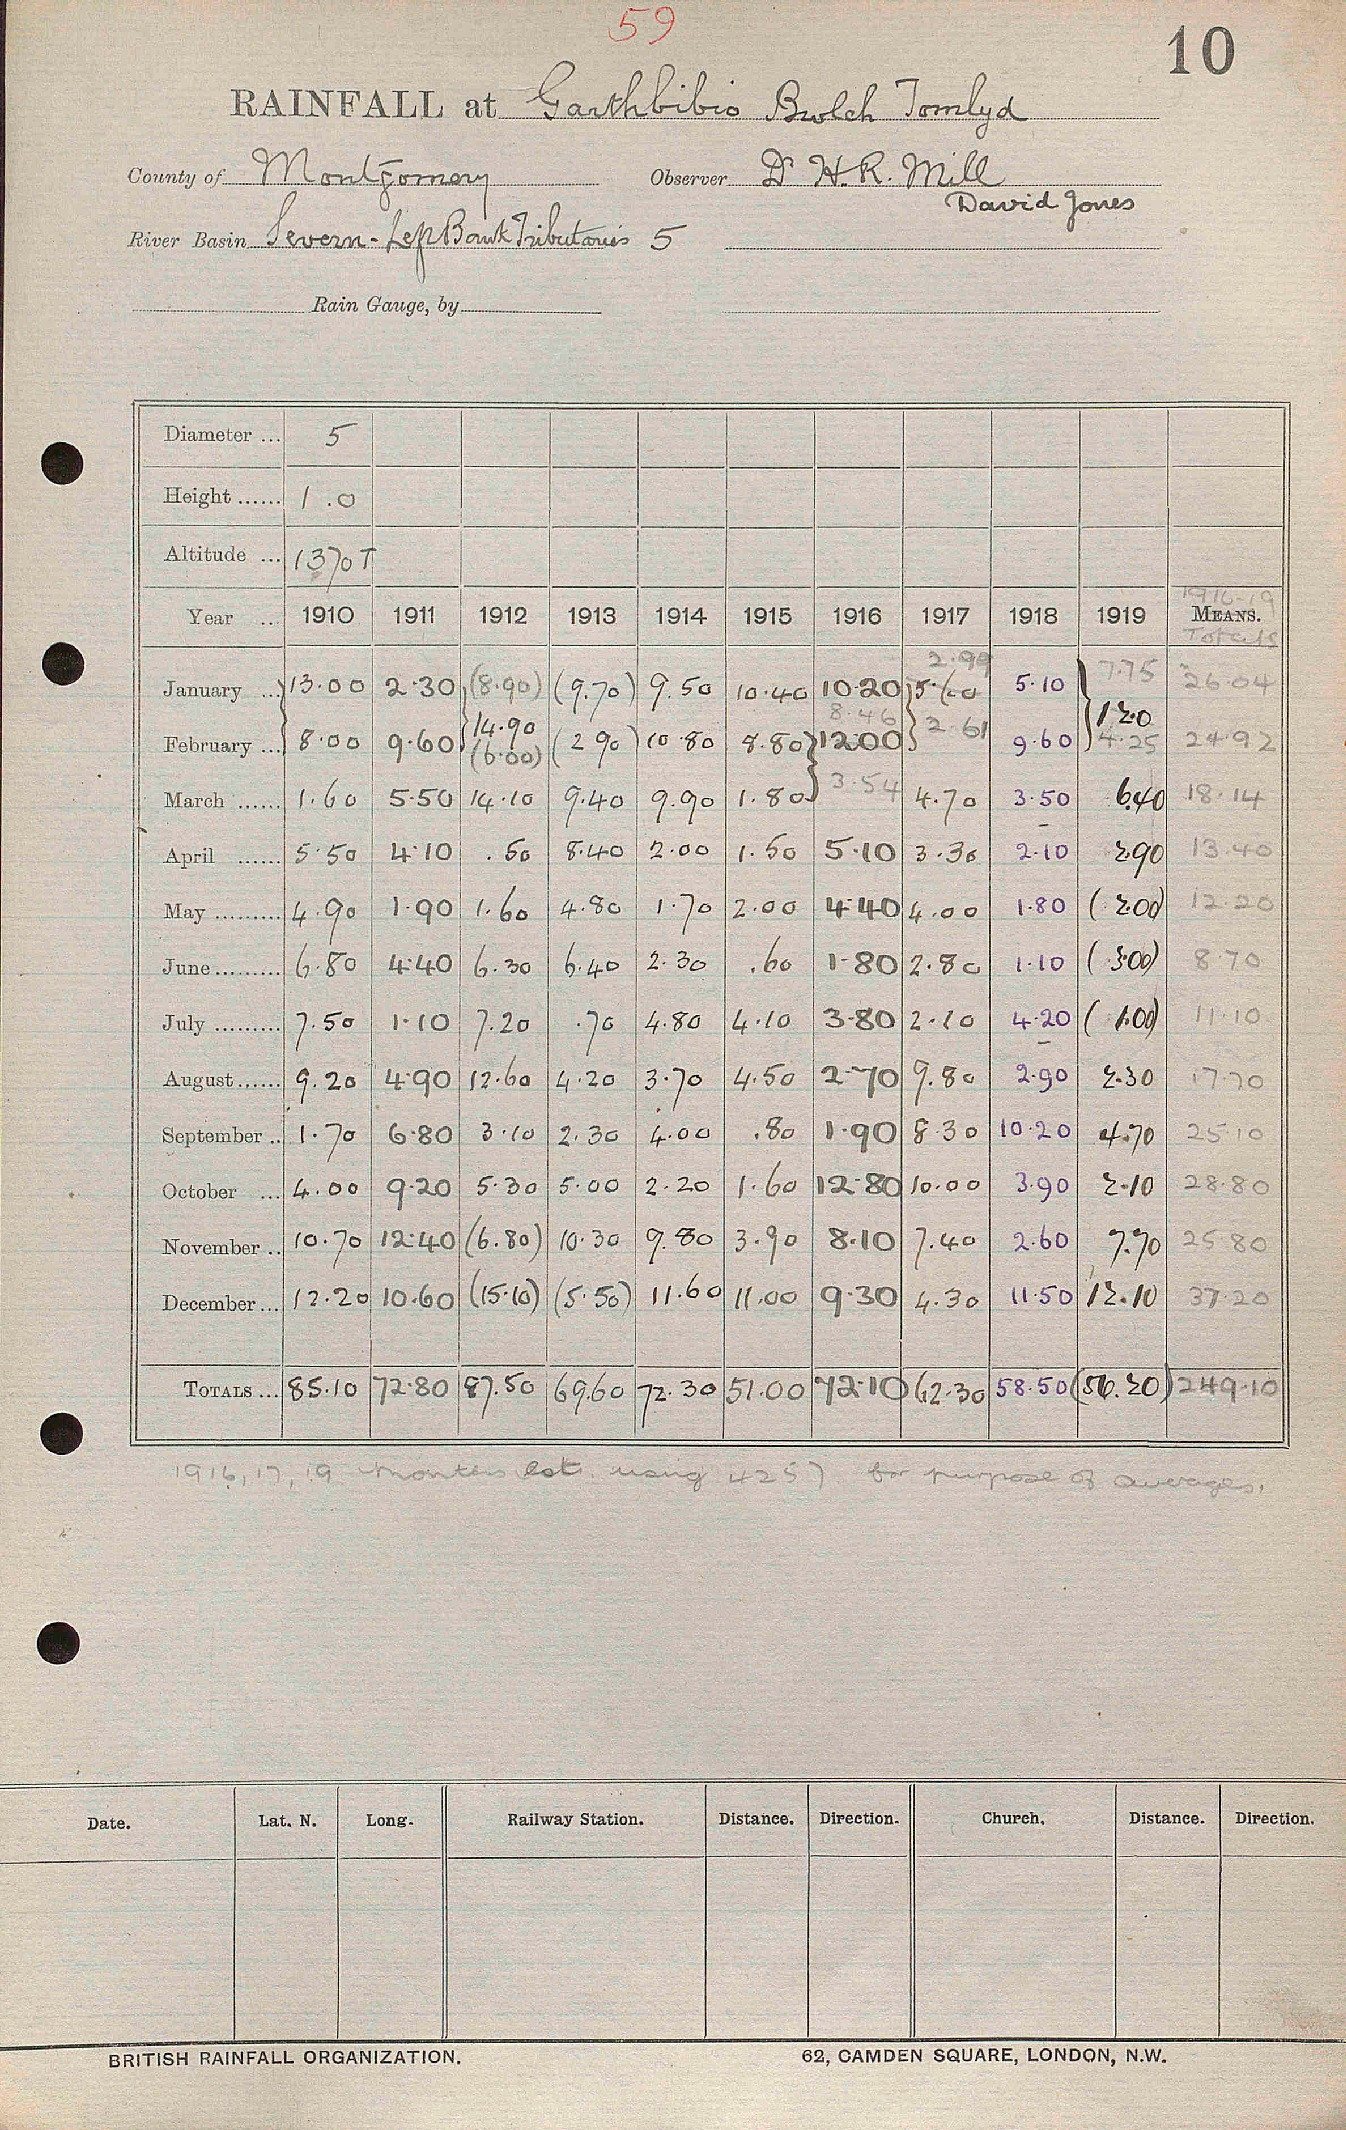 59
10
RAINFALL at Garthbibio Bwlch Tomlyd
County of Montgomery Observer Dr H.R. Mill
David Jones
River Basin Severn - Left Bank Tributaries 5
Rain Gauge, by
Diameter ... 5
Height ...... 1.0
Altitude ... 1370 T
1916-19
Year ... 1910 1911 1912 1913 1914 1915 1916 1917 1918 1919 MEANS.
Totals
2.99 7.75
January ... 13.00 2.30 (8.90) (9.70) 9.50 10.40 10.20 5.60 5.10 26.04
14.90 8.46 2.61 12.0
February ... 8.00 9.60 (6.00) (2.90) 10.80 8.80 12.00 9.60 4.25 24.92
March ...... 1.60 5.50 14.10 9.40 9.90 1.80 3.54 4.70 3.50 6.40 18.14
April ...... 5.50 4.10 .50 8.40 2.00 1.50 5.10 3.30 2.10 2.90 13.40
May ......... 4.90 1.90 1.60 4.80 1.70 2.00 4.40 4.00 1.80 (2.00) 12.20
June ......... 6.80 4.40 6.30 6.40 2.30 .60 1.80 2.80 1.10 (3.00) 8.70
July ......... 7.50 1.10 7.20 .70 4.80 4.10 3.80 2.10 4.20 (1.00) 11.10
August ...... 9.20 4.90 12.60 4.20 3.70 4.50 2.70 9.80 2.90 2.30 17.70
September .. 1.70 6.80 3.10 2.30 4.00 .80 1.90 8.30 10.20 4.70 25.10
October ... 4.00 9.20 5.30 5.00 2.20 1.60 12.80 10.00 3.90 2.10 28.80
November .. 10.70 12.40 (6.80) 10.30 9.80 3.90 8.10 7.40 2.60 7.70 25.80
December ... 12.20 10.60 (15.10) (5.50) 11.60 11.00 9.30 4.30 11.50 12.10 37.20
TOTALS ... 85.10 72.80 87.50 69.60 72.30 51.00 72.10 62.30 58.50 (56.20) 249.10
1916, 17, 19 months est. using 4257 for purpose of averages.
Date. Lat. N. Long. Railway Station. Distance. Direction. Church. Distance. Direction.
BRITISH RAINFALL ORGANIZATION. 62, CAMDEN SQUARE, LONDON, N.W.